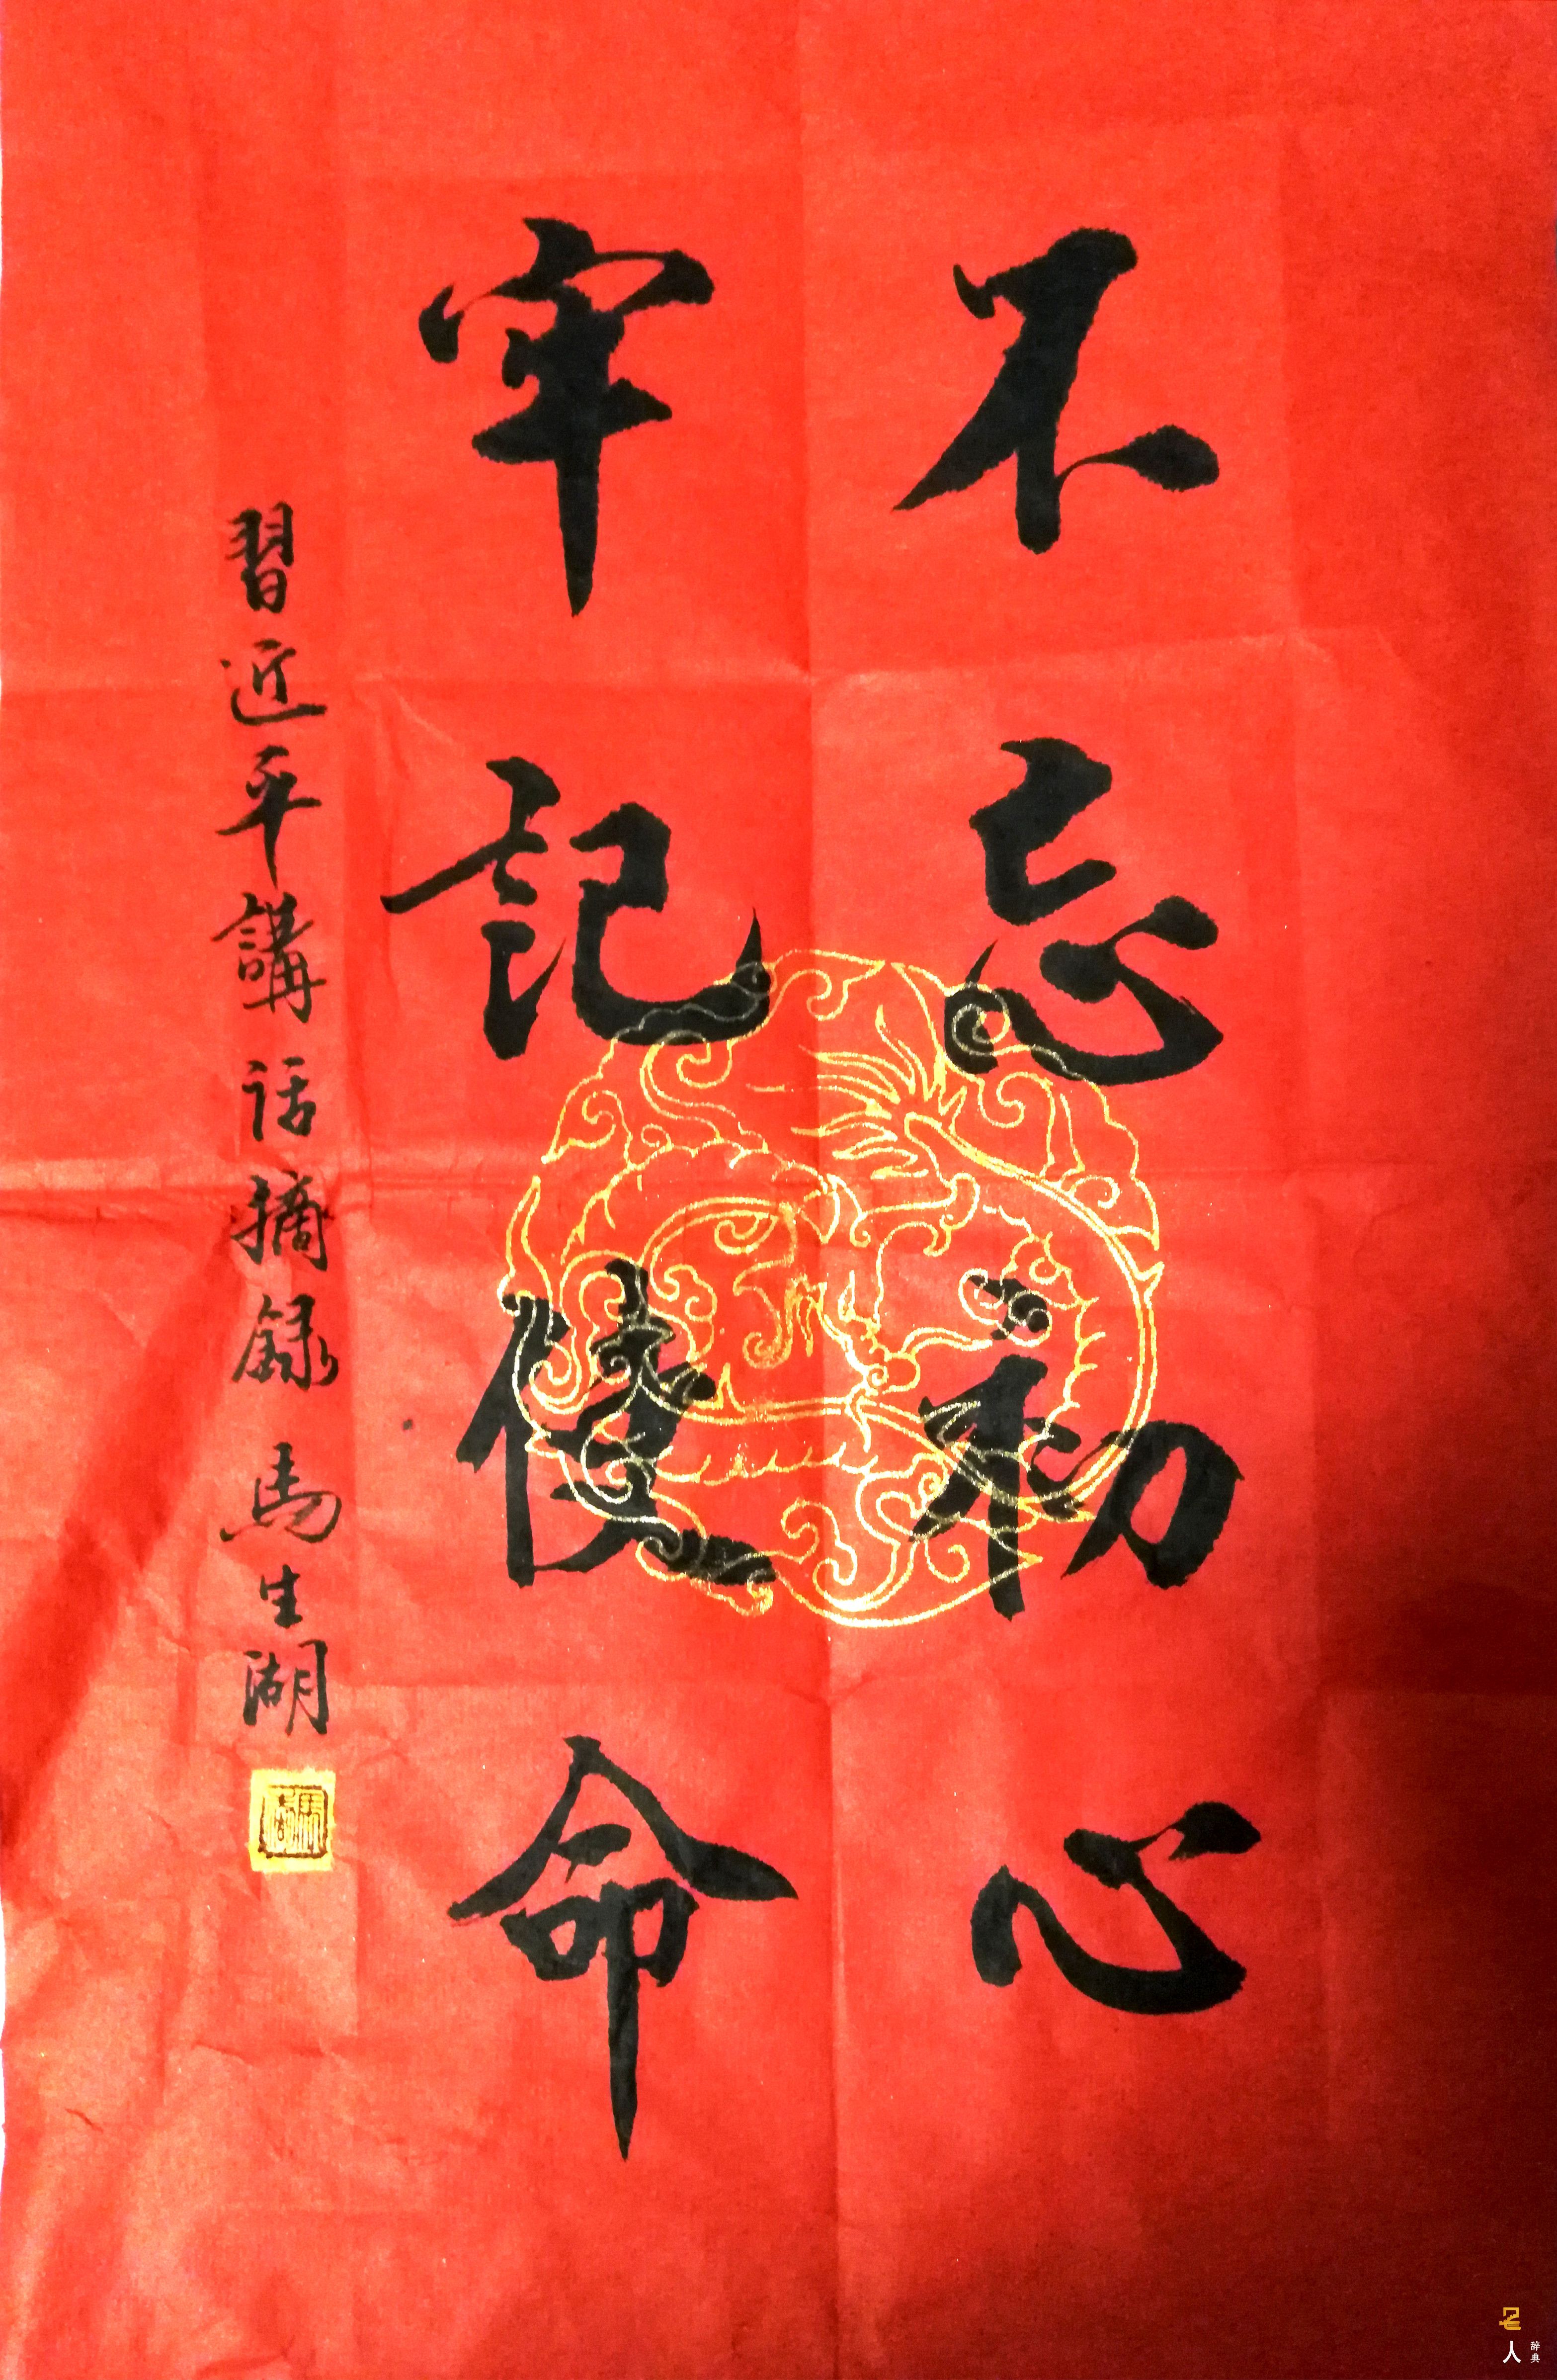 不忘初心
牢記使命
習近平講话摘録 馬生湖
名人辞典